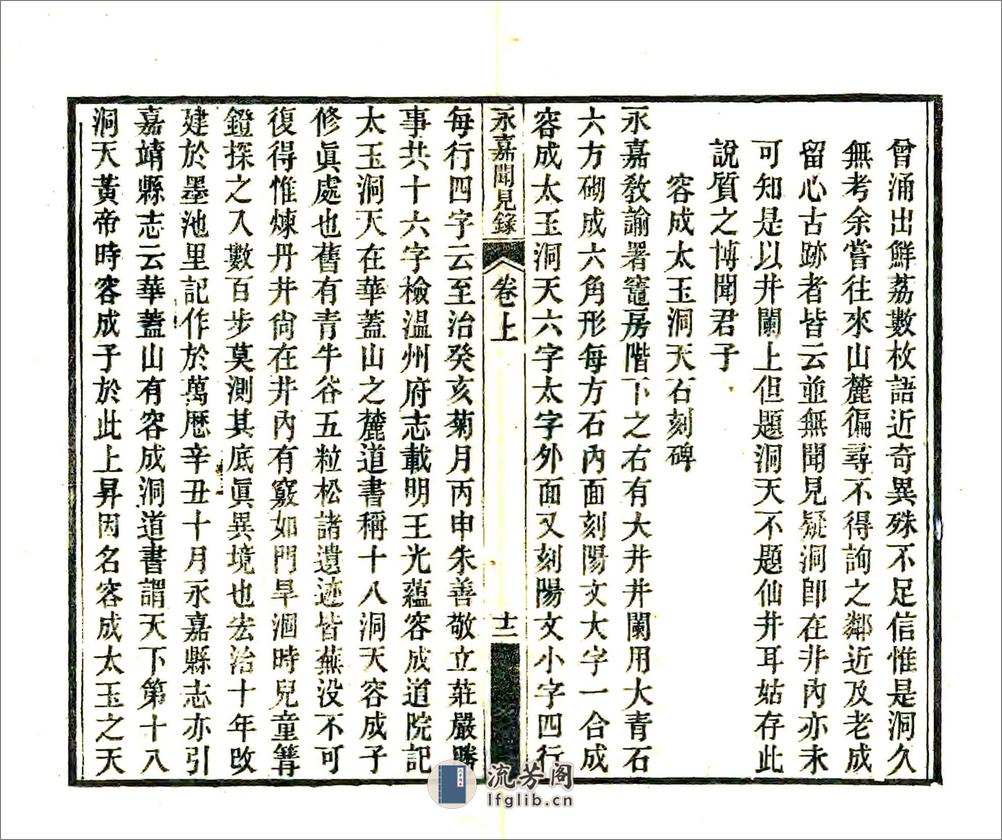 曾涌出鮮荔數枚語近奇異殊不足信惟是洞久
無考余嘗往來山麓徧尋不得詢之鄰近及老成
留心古跡者皆云並無聞見疑洞卽在井內亦未
可知是以井闌上但題洞天不題仙井耳姑存此
說質之博聞君子
容成太玉洞天石刻碑
永嘉教諭署竈房階下之右有大井井闌用大青石
六方砌成六角形每方石內面刻陽文大字一合成
容成太玉洞天六字太字外面又刻陽文小字四行
永嘉聞見錄
卷上
十二
每行四字云至治癸亥菊月丙申朱善敬立莊嚴勝
事共十六字檢温州府志載明王光蘊容成道院記
太玉洞天在華蓋山之麓道書稱十八洞天容成子
修眞處也舊有青牛谷五粒松諸遺迹皆蕪没不可
復得惟煉丹井尙在井內有竅如門旱涸時兒童篝
鐙探之入數百步莫測其底眞異境也宏治十年改
建於墨池里記作於萬厯辛丑十月永嘉縣志亦引
嘉靖縣志云華蓋山有容成洞道書謂天下第十八
洞天黃帝時容成子於此上昇因名容成太玉之天
流芳阁
lfglib.cn